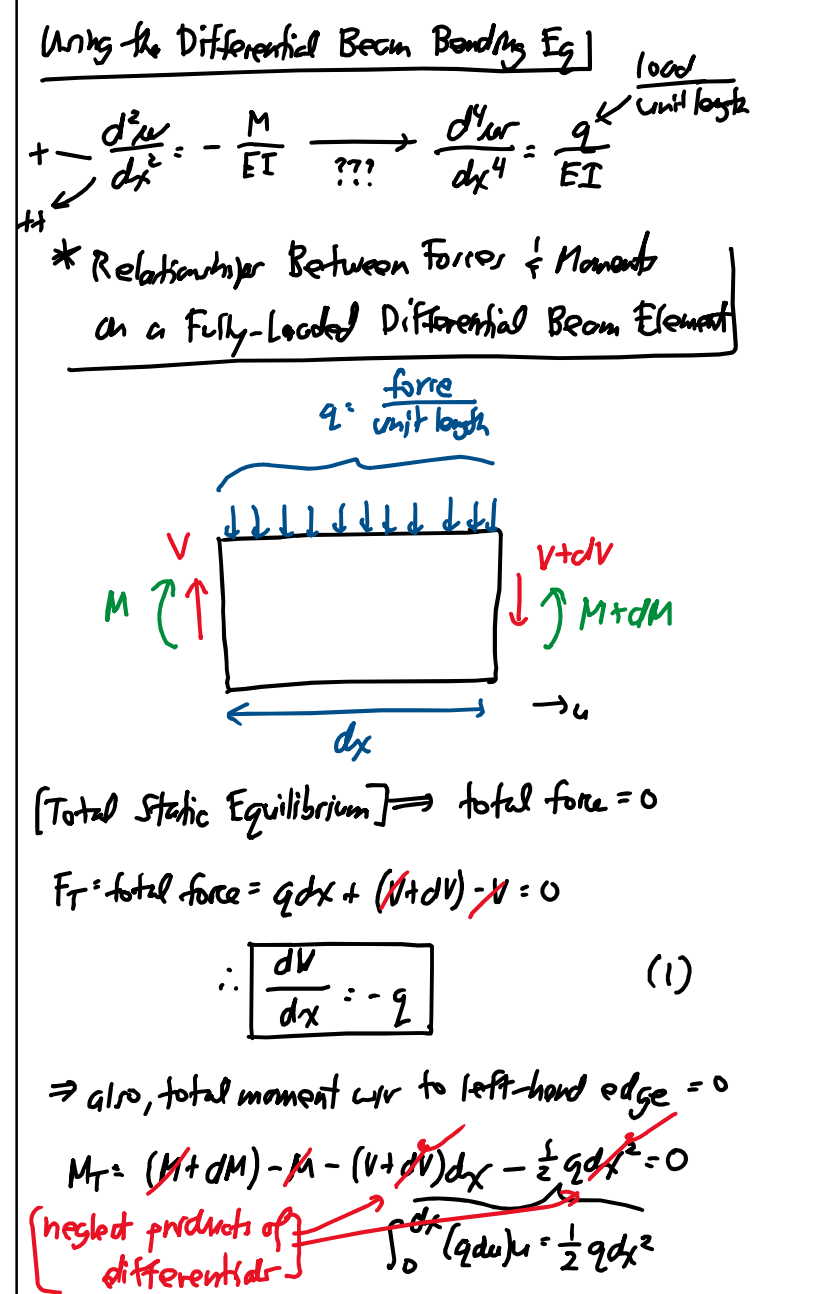 Using the Differential Beam Bending Eq
load
unit length
+ d²w/dx² = - M/EI → ??? d⁴w/dx⁴ = q/EI
++
* Relationships Between Forces & Moments
on a Fully-Loaded Differential Beam Element
q = force/unit length
V
V+dV
M
M+dM
→ u
dx
[Total Static Equilibrium] ⟹ total force = 0
F_T = total force = qdx + (V+dV) - V = 0
∴ dV/dx = - q (1)
⇒ also, total moment w/r to left-hand edge = 0
M_T = (M+dM) - M - (V+dV)dx - ½ qdx² = 0
[neglect products of
differentials]
∫₀^dx (qdu)u = ½ qdx²